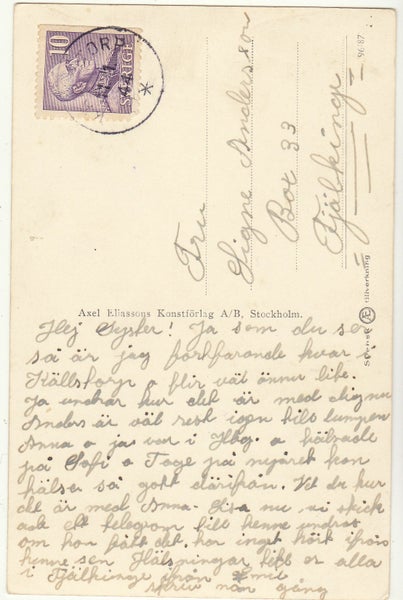 10
SVERIGE
ORP
11 1
44
Fru
Signe Andersson
Box 33
Fjälkinge
9687
Svensk Æ tillverkning
Axel Eliassons Konstförlag A/B, Stockholm.
Hej Syster! Ja som du ser
så är jag fortfarande kvar i
Källstorp o blir väl ännu lite.
Ja undrar hur det är med
Anders är väl rest igen till lumpen
Anna o ja var i Hbg. o hälsade
på Sofi o Tage på nyåret kan
hälsa så gott därifrån. Vet du hur
det är med Anna Lisa nu, vi skick
ade ett telegram till henne undrar
om hon fått det. har inget hört ifrån
henne sen Hälsningar till er alla
i Fjälkinge ifrån mii
skriv nån gång